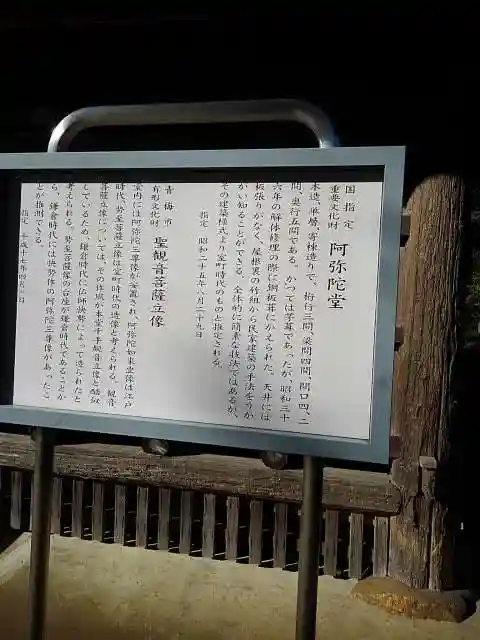 国指定
重要文化財 阿弥陀堂
木造、単層、寄棟造りで、桁行三間、梁間四間、間口四、二
間、奥行五間である。かつては茅葺であったが、昭和三十
六年の解体修理の際に銅板葺にかえられた。天井には
板張りがなく、屋根裏の竹組から民家建築の手法をうか
がい知ることができる。全体的に簡素な技法ではあるが、
その建築様式より室町時代のものと推定される。
指定 昭和二十五年八月二十九日
青梅市
有形文化財 聖観音菩薩立像
堂内には阿弥陀三尊像が安置され、阿弥陀如来坐像は江戸
時代、勢至菩薩立像は室町時代の造像と考えられる。観音
菩薩立像については、その作風が本堂千手観音立像と酷似
しているため、鎌倉時代に仏師快勢によって造られたと
考えられる。勢至菩薩像の台座が鎌倉時代であることか
ら、鎌倉時代には快勢作の阿弥陀三尊像があったこ
とが推測できる。
指定 平成十七年四月